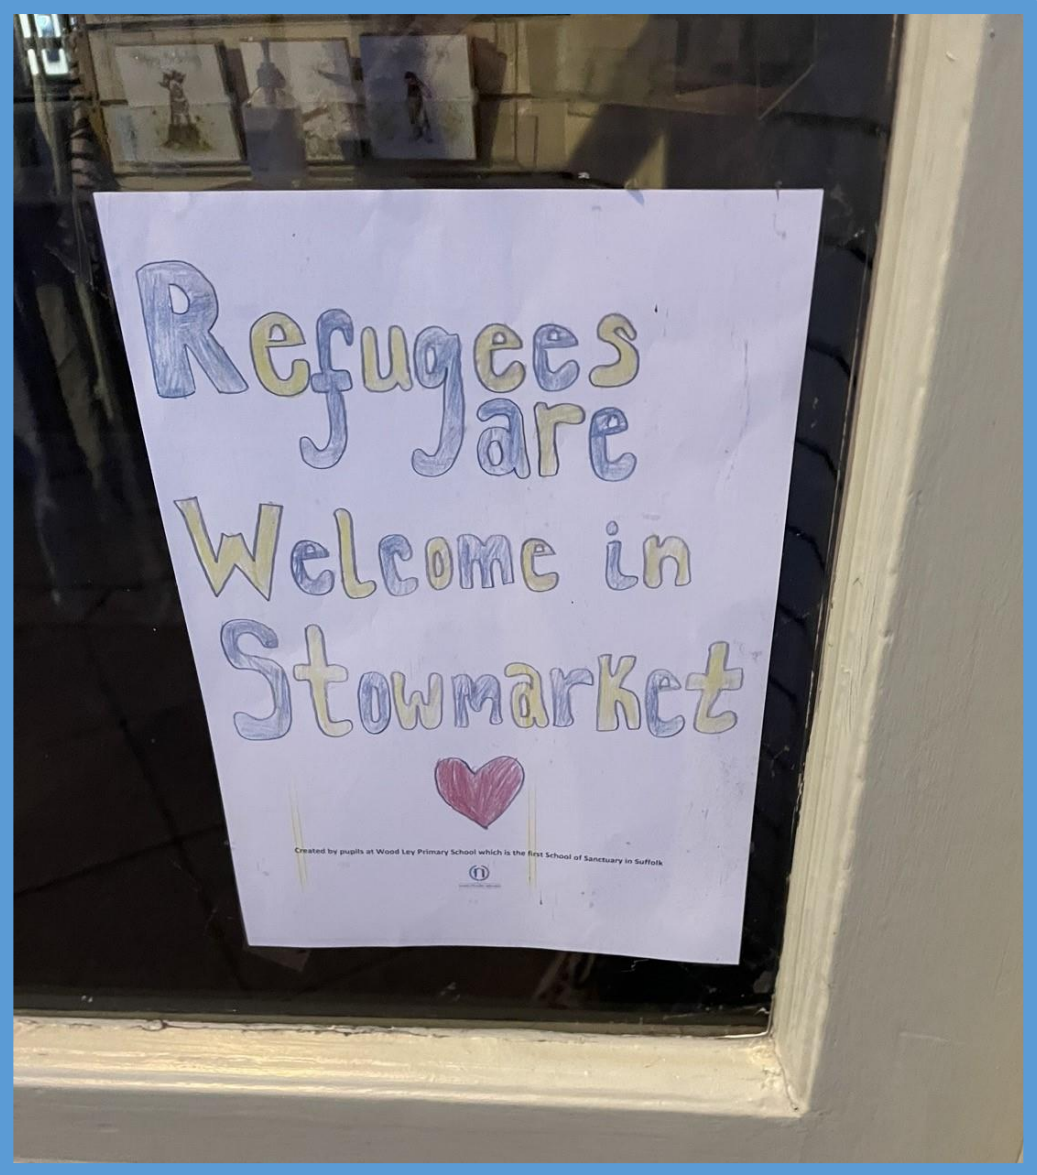 Refugees
are
Welcome in
Stowmarket
Created by pupils at Wood Ley Primary School which is the first School of Sanctuary in Suffolk